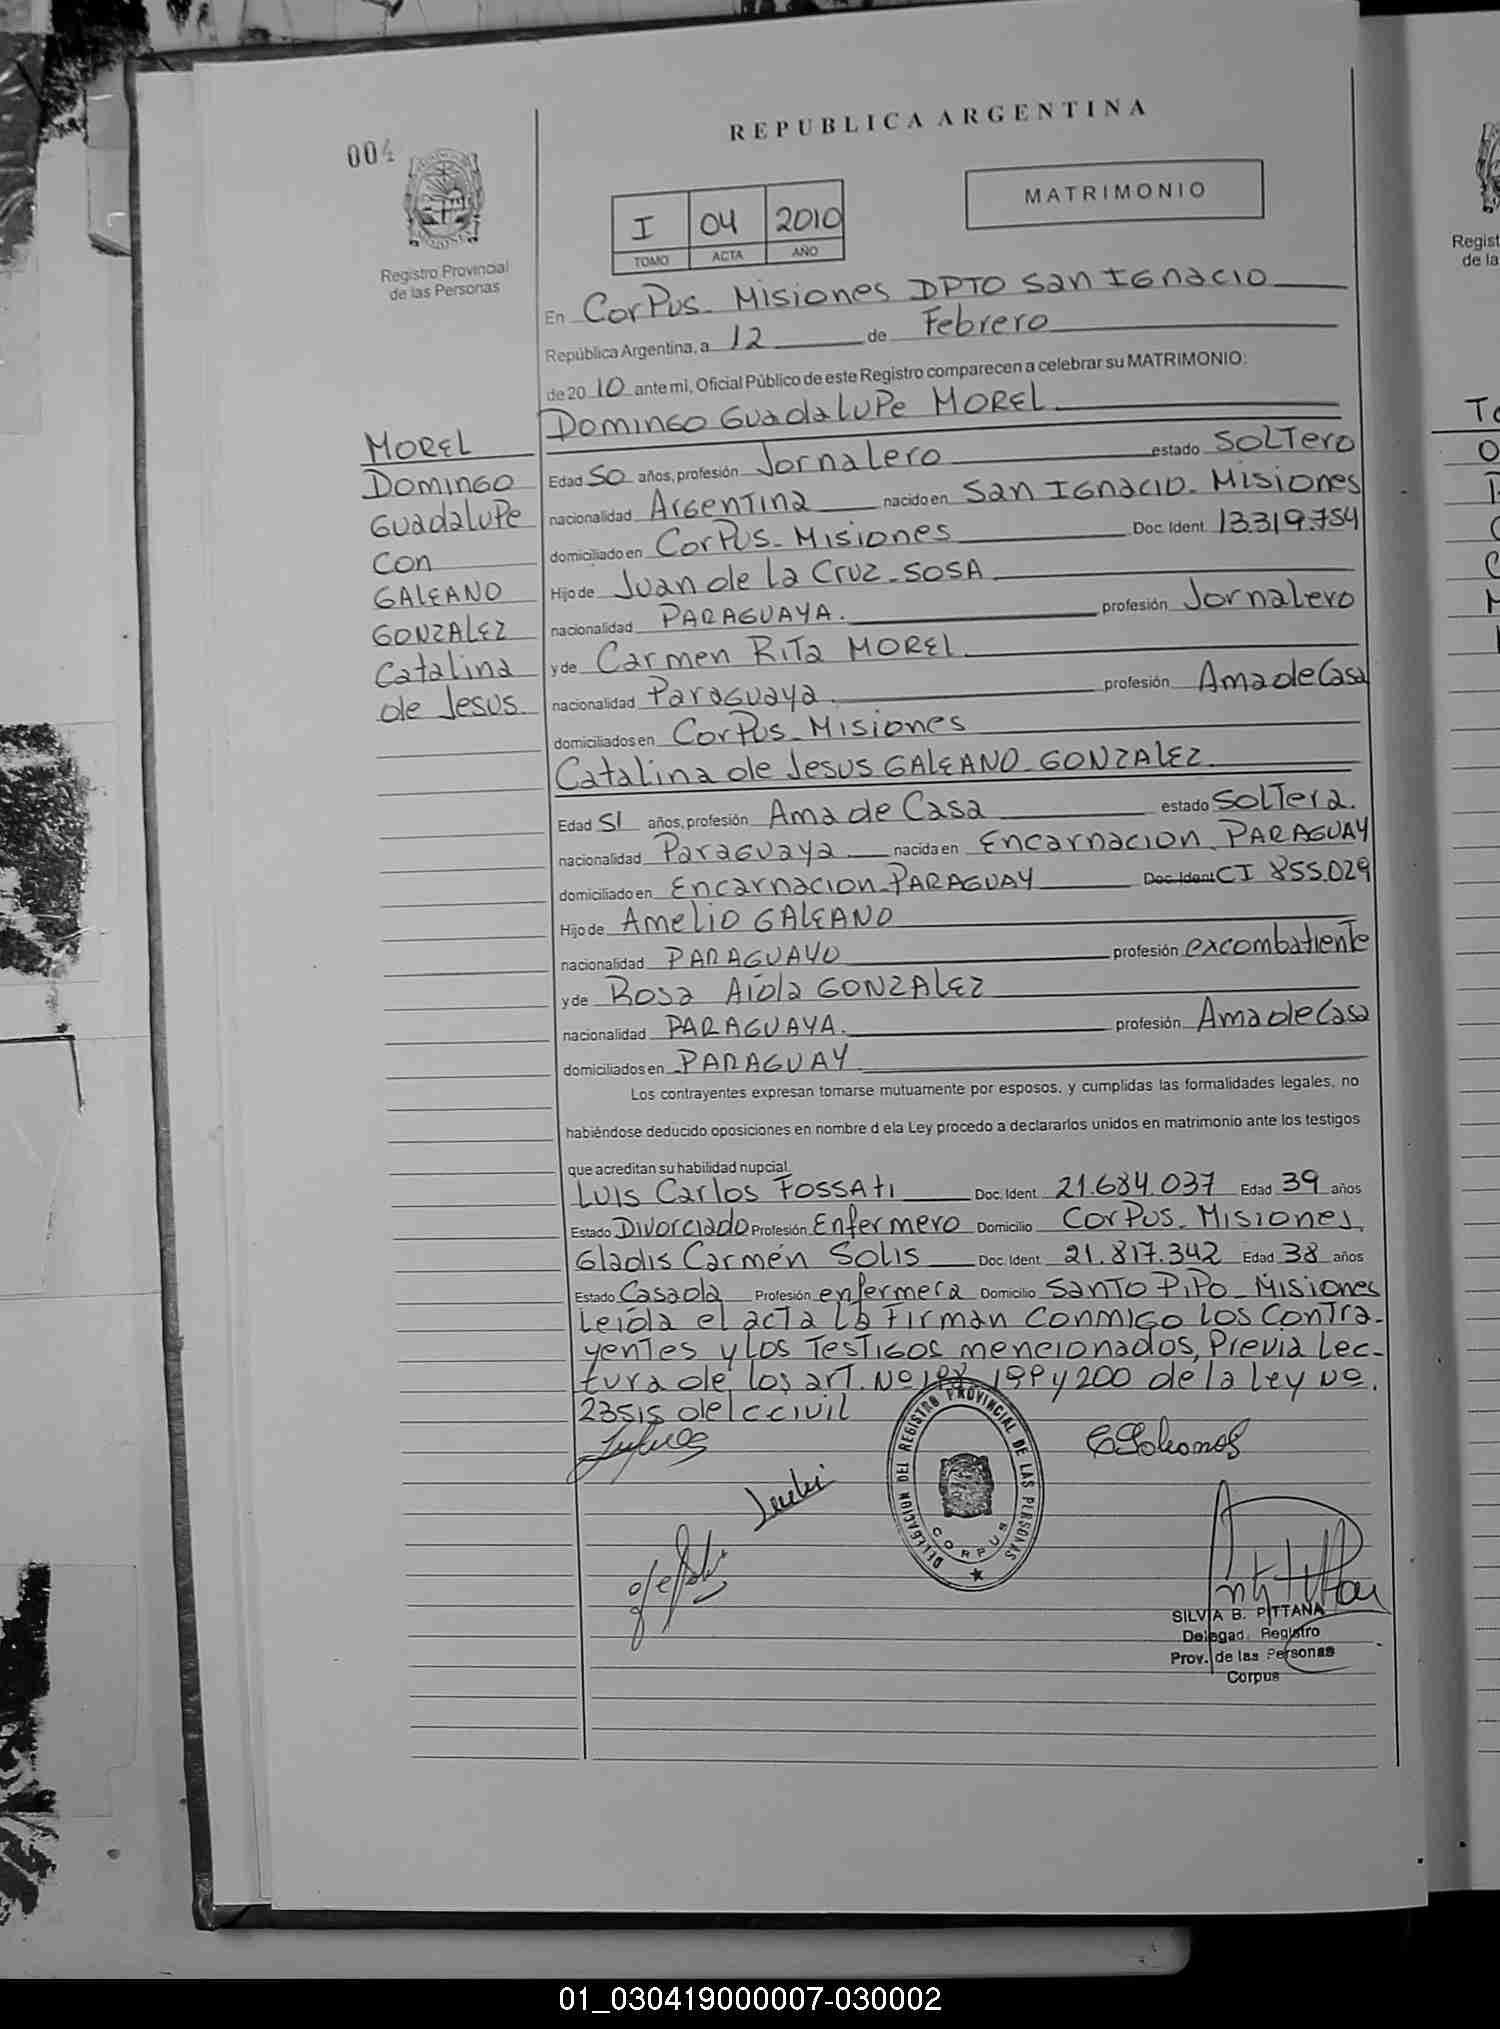 REPUBLICA ARGENTINA
004
MATRIMONIO
I 04 2010
TOMO ACTA AÑO
Registro Provincial
de las Personas
En CorPus - Misiones DPTO San Ignacio
República Argentina, a 12 de Febrero
de 20 10 ante mi, Oficial Público de este Registro comparecen a celebrar su MATRIMONIO:
MOREL
DOMINGO
GUadaluPe
Con
GALEANO
GONZALEZ
Catalina
de Jesus.
DOMINGO GUadaLUPe MOREL
Edad 50 años, profesión Jornalero estado SOLTero
nacionalidad Argentina nacido en San Ignacio - Misiones
domiciliado en CorPus - Misiones Doc. Ident. 13.319.754
Hijo de Juan de la Cruz - SOSA
nacionalidad PARAGUAYA. profesión Jornalero
y de Carmen Rita MOREL
nacionalidad Paraguaya. profesión Ama de Casa
domiciliados en CorPus - Misiones
Catalina de Jesus GALEANO - GONZALEZ
Edad 51 años, profesión Ama de Casa estado SolTera.
nacionalidad Paraguaya nacida en Encarnacion - PARAGUAY
domiciliado en Encarnacion - PARAGUAY Doc. Ident CI 855.029
Hijo de Amelio GALEANO
nacionalidad PARAGUAYO profesión excombatiente
y de Rosa Aida GONZALEZ
nacionalidad PARAGUAYA. profesión Ama de Casa
domiciliados en PARAGUAY
Los contrayentes expresan tomarse mutuamente por esposos, y cumplidas las formalidades legales, no
habiéndose deducido oposiciones en nombre d ela Ley procedo a declararlos unidos en matrimonio ante los testigos
que acreditan su habilidad nupcial.
Luis Carlos FOSSATI Doc. Ident. 21.684.037 Edad 39 años
Estado Divorciado Profesión Enfermero Domicilio CorPus - Misiones.
Gladis Carmén Solis Doc. Ident. 21.817.342 Edad 38 años
Estado Casada Profesión enfermera Domicilio SANTO PiPo - Misiones
Leida el acta la Firman Conmigo los Contra-
yentes y los Testigos mencionados, Previa Lec-
tura de los art. Nº 198, 199 y 200 de la Ley Nº.
23515 del C Civil
DELEGACION DEL REGISTRO PROVINCIAL DE LAS PERSONAS
CORPUS
SILVIA B. PITTANA
Delegad. Registro
Prov. de las Personas
Corpus
Regist
de la
01_030419000007-030002